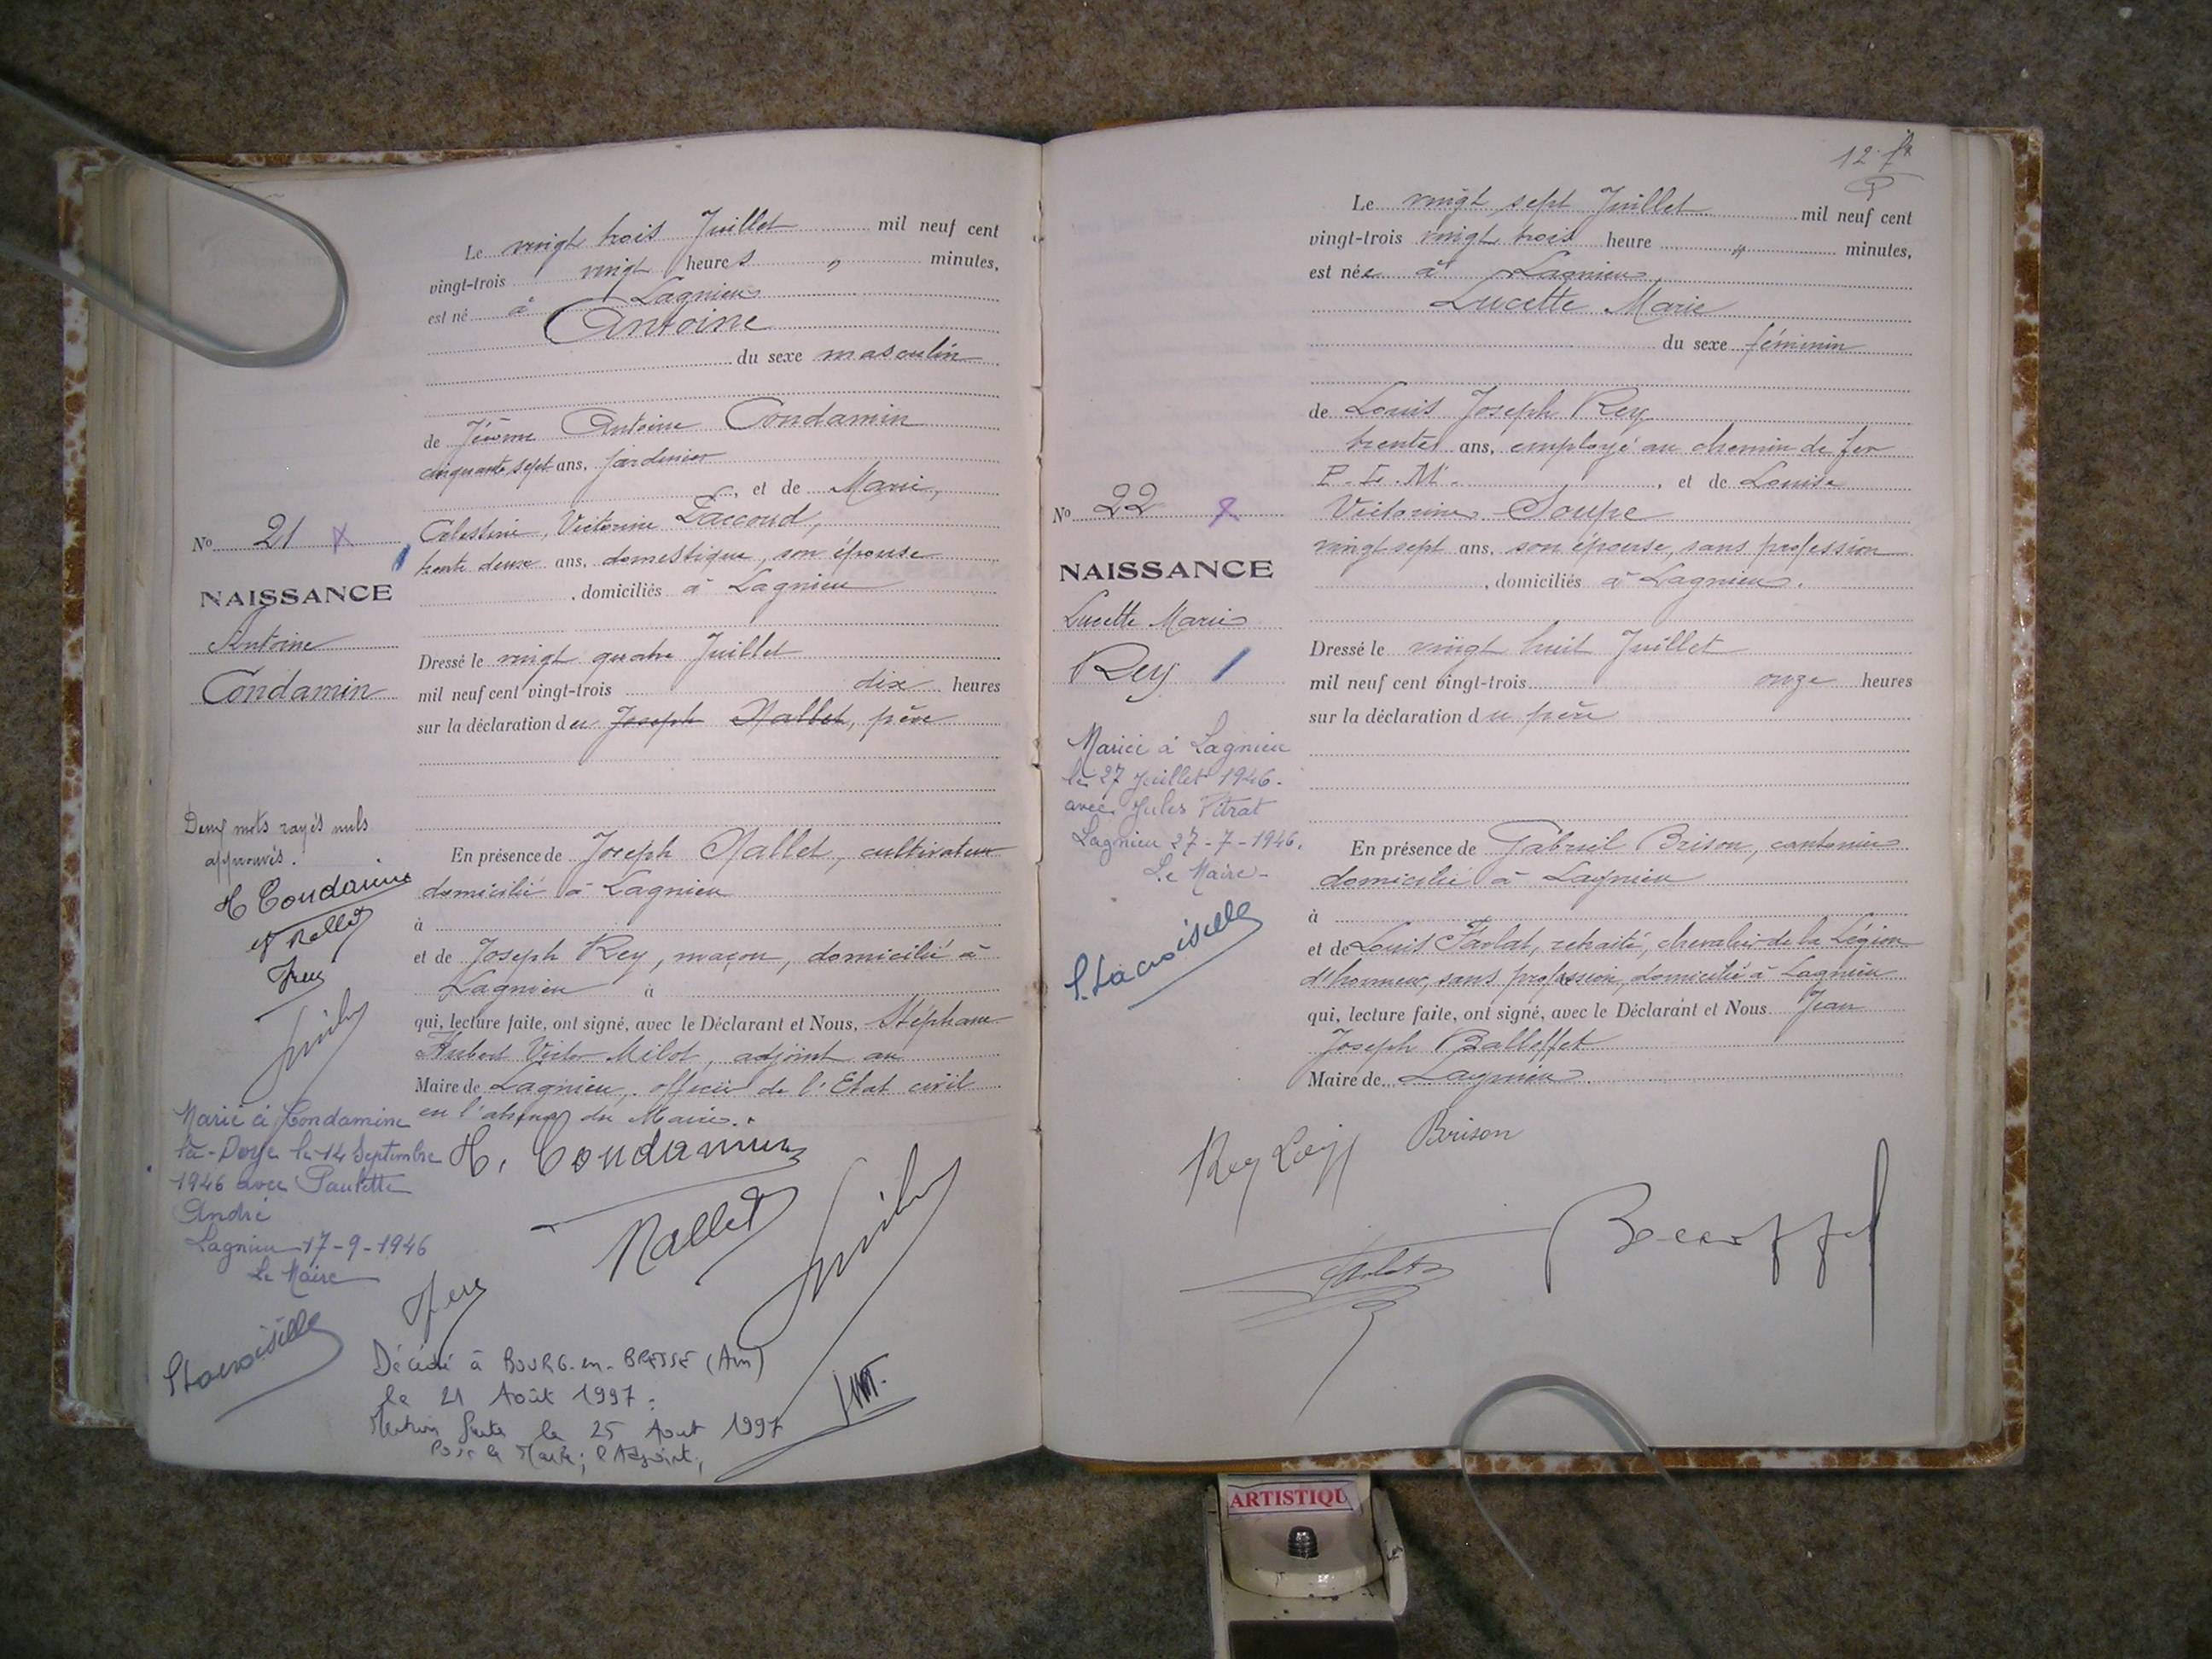 Le vingt trois Juillet mil neuf cent
vingt-trois vingt heures " minutes,
est né à Lagnieu
Antoine
du sexe masculin
de Jérôme Antoine Condamin
cinquante sept ans, jardinier
, et de Marie,
Célestine, Victorine Laccoud,
trente deux ans, domestique, son épouse
, domiciliés à Lagnieu
No 21 x
NAISSANCE
Antoine
Condamin
Dressé le vingt quatre Juillet
mil neuf cent vingt-trois dix heures
sur la déclaration du Joseph Nallet, père
Deux mots rayés nuls
approuvés.
H Condamin
Nallet
Rey
En présence de Joseph Nallet, cultivateur
domicilié à Lagnieu
à
et de Joseph Rey, maçon, domicilié à
Lagnieu à
qui, lecture faite, ont signé, avec le Déclarant et Nous, Stéphane
Hubert Victor Milot, adjoint au
Maire de Lagnieu, officier de l'Etat civil
en l'absence du Maire.
Marié à Condamine
la-Doye le 14 Septembre
1946 avec Paulette
André
Lagnieu 17-9-1946
Le Maire
S. Lacroiselle
H. Condamin
Nallet
Rey
Décédé à BOURG-en-BRESSE (Ain)
le 21 Août 1997.
Mention faite le 25 Aout 1997
Pour le Maire; l'Adjoint,
12
Le vingt sept Juillet mil neuf cent
vingt-trois vingt trois heure " minutes,
est née à Lagnieu
Lucette Marie
du sexe féminin
de Louis Joseph Rey
trente ans, employé au chemin de fer
P.L.M. , et de Louise
Victorine Soupe
vingt sept ans, son épouse, sans profession
, domiciliés à Lagnieu.
No 22 x
NAISSANCE
Lucette Marie
Rey
Dressé le vingt huit Juillet
mil neuf cent vingt-trois onze heures
sur la déclaration du père
Mariée à Lagnieu
le 27 Juillet 1946.
avec Jules Pitrat
Lagnieu 27-7-1946.
Le Maire-
S. Lacroiselle
En présence de Gabriel Brison, cantonnier
domicilié à Lagnieu
à
et de Louis Farlat, retraité, chevalier de la Légion
d'honneur, sans profession, domicilié à Lagnieu
qui, lecture faite, ont signé, avec le Déclarant et Nous Jean
Joseph Balleffet
Maire de Lagnieu.
Rey Brison
ARTISTIQU